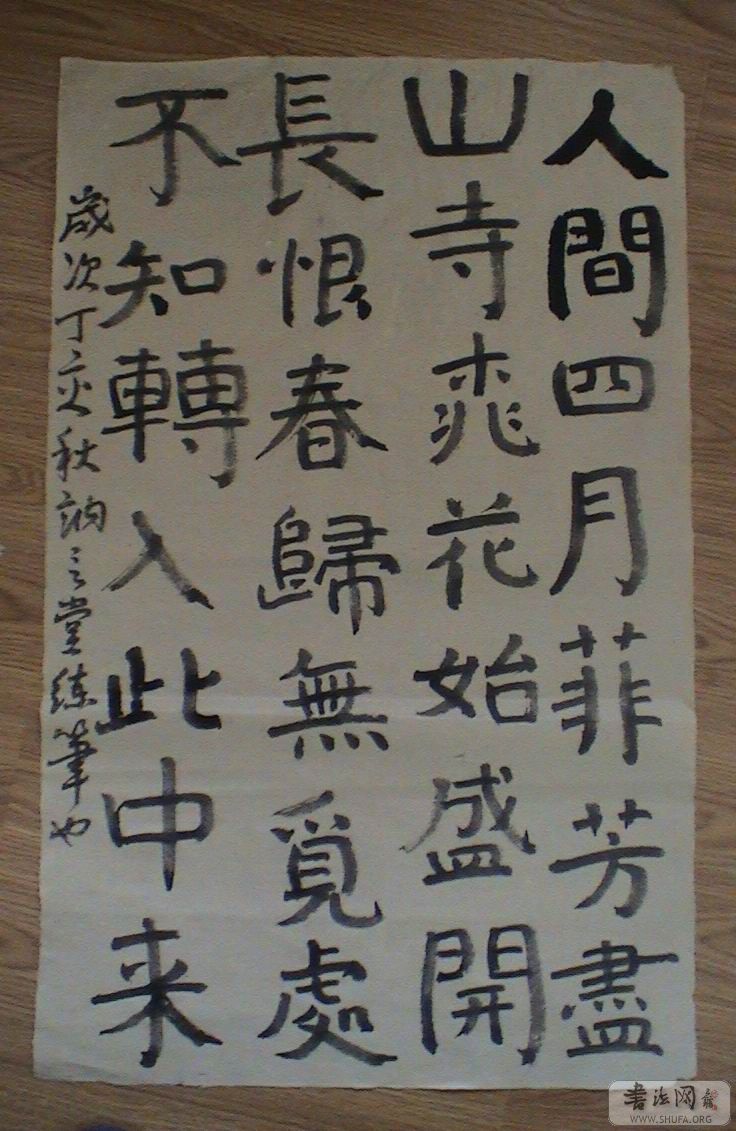 人間四月菲芳盡
山寺桃花始盛開
長恨春歸無覓處
不知轉入此中来
歲次丁亥秋訥言堂練筆也
書法网
WWW.SHUFA.ORG